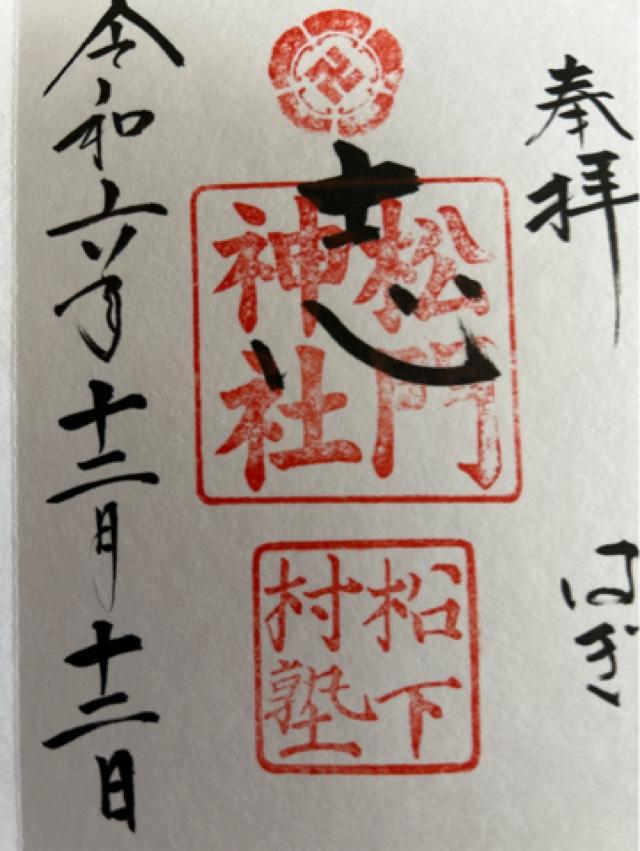 奉拝
はぎ
志
松門
神社
松下
村塾
令和六年十二月十二日